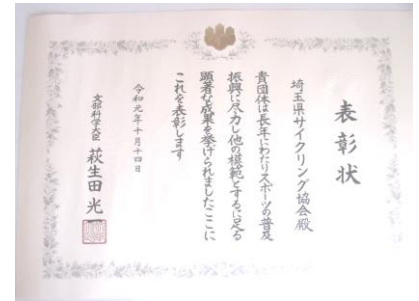 表彰状
埼玉県サイクリング協会殿
貴団体は長年にわたりスポーツの普及
振興に尽力し他の模範とするに足る
顕著な成果を挙げられましたここに
これを表彰します
令和元年十月十四日
文部科学大臣 萩生田光一